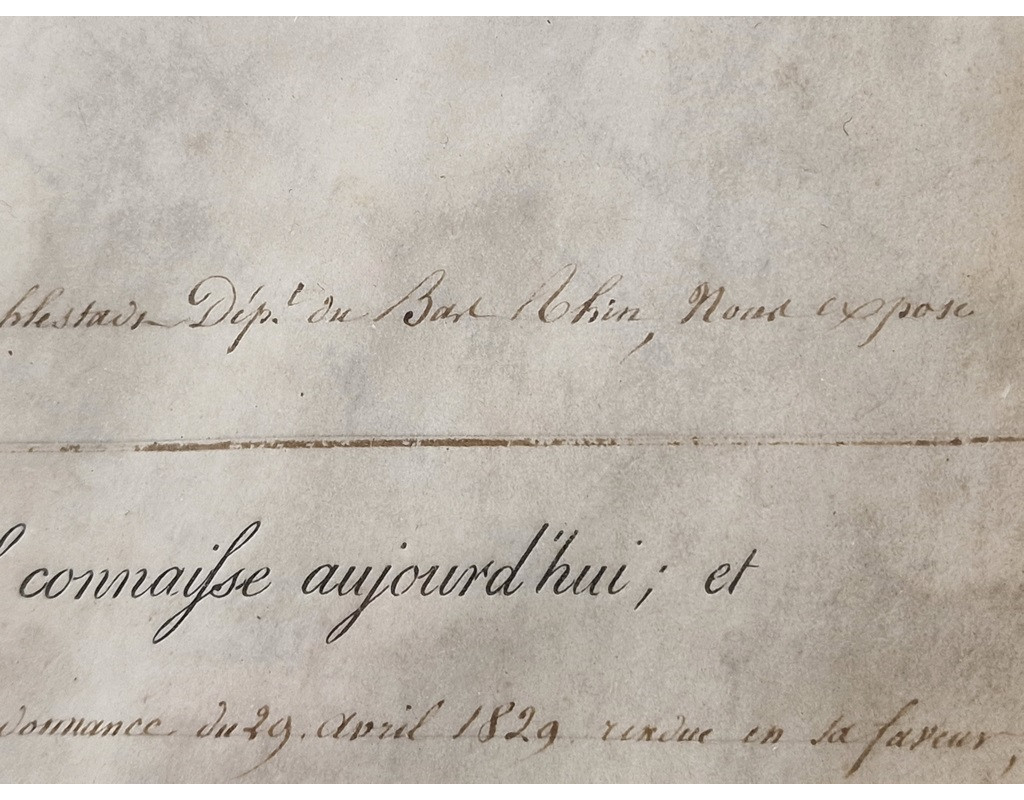 hlestadt Dép.t du Bas Rhin, Nous expose
connaisse aujourd'hui; et
donnance du 29. Avril 1829. rendue en sa faveur,